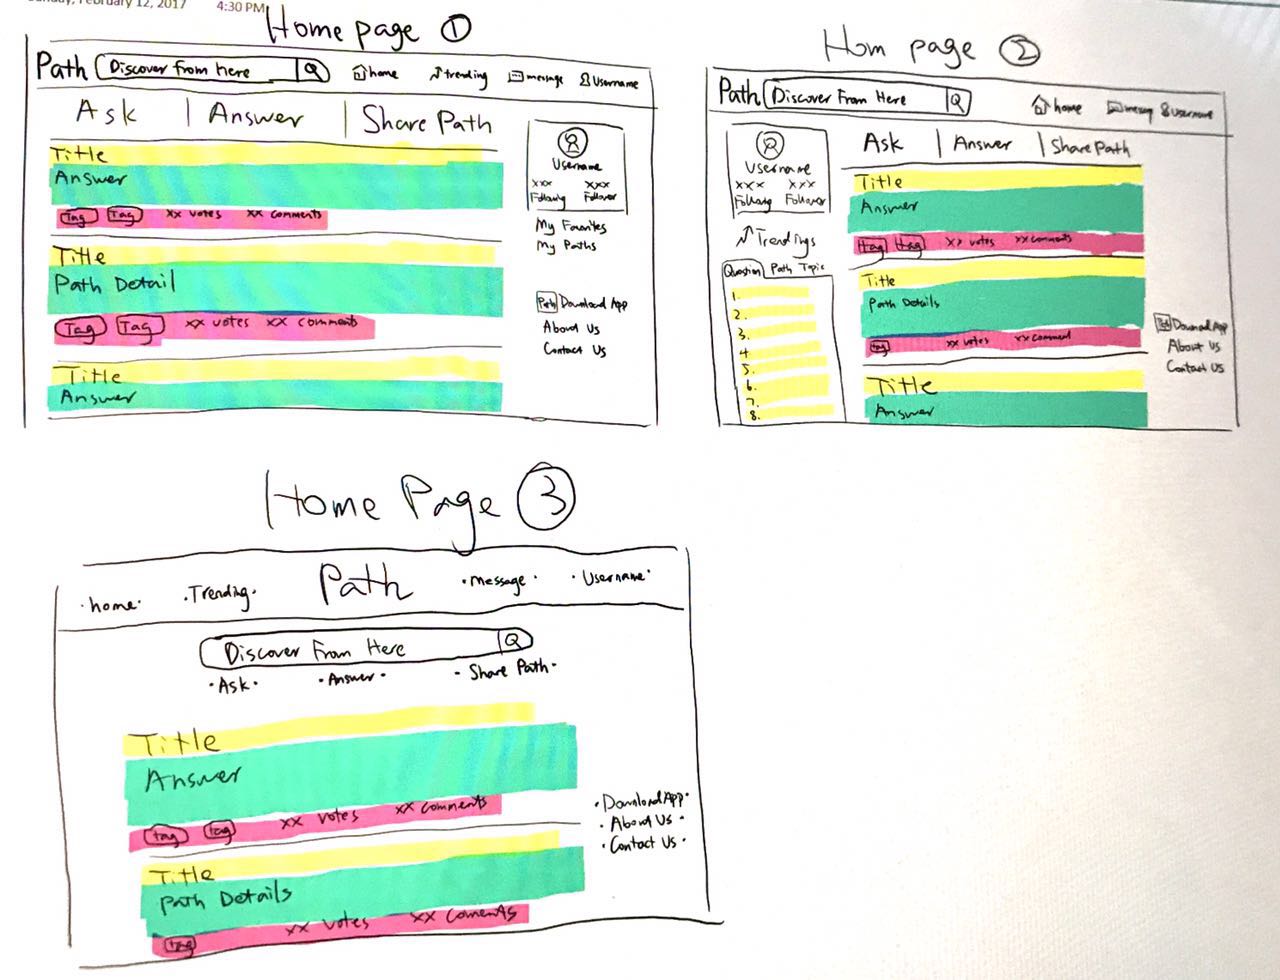 February 12, 2017 4:30 PM
Home page ①
Path Discover From Here home trending message Username
Ask | Answer | Share Path
Title
Answer
Tag Tag xx votes xx comments
Title
Path Detail
Tag Tag xx votes xx comments
Title
Answer
Username
xxx xxx
Following Follower
My Favorites
My Paths
Path Download App
About Us
Contact Us
Hom page ②
Path Discover From Here home messag Username
Username
xxx xxx
Following Follower
Trendings
Question Path Topic
1.
2.
3.
4
5.
6.
7.
8.
Ask | Answer | Share Path
Title
Answer
tag tag xx votes xx comments
Title
Path Details
tag xx votes xx comment
Title
Answer
Download App
About Us
Contact Us
Home Page ③
·home· ·Trending· Path ·Message· ·Username·
Discover From Here
·Ask· ·Answer· ·Share Path·
Title
Answer
tag tag xx votes xx comments
Title
Path Details
tag xx votes xx Coments
·Download App·
·About Us·
·Contact Us·